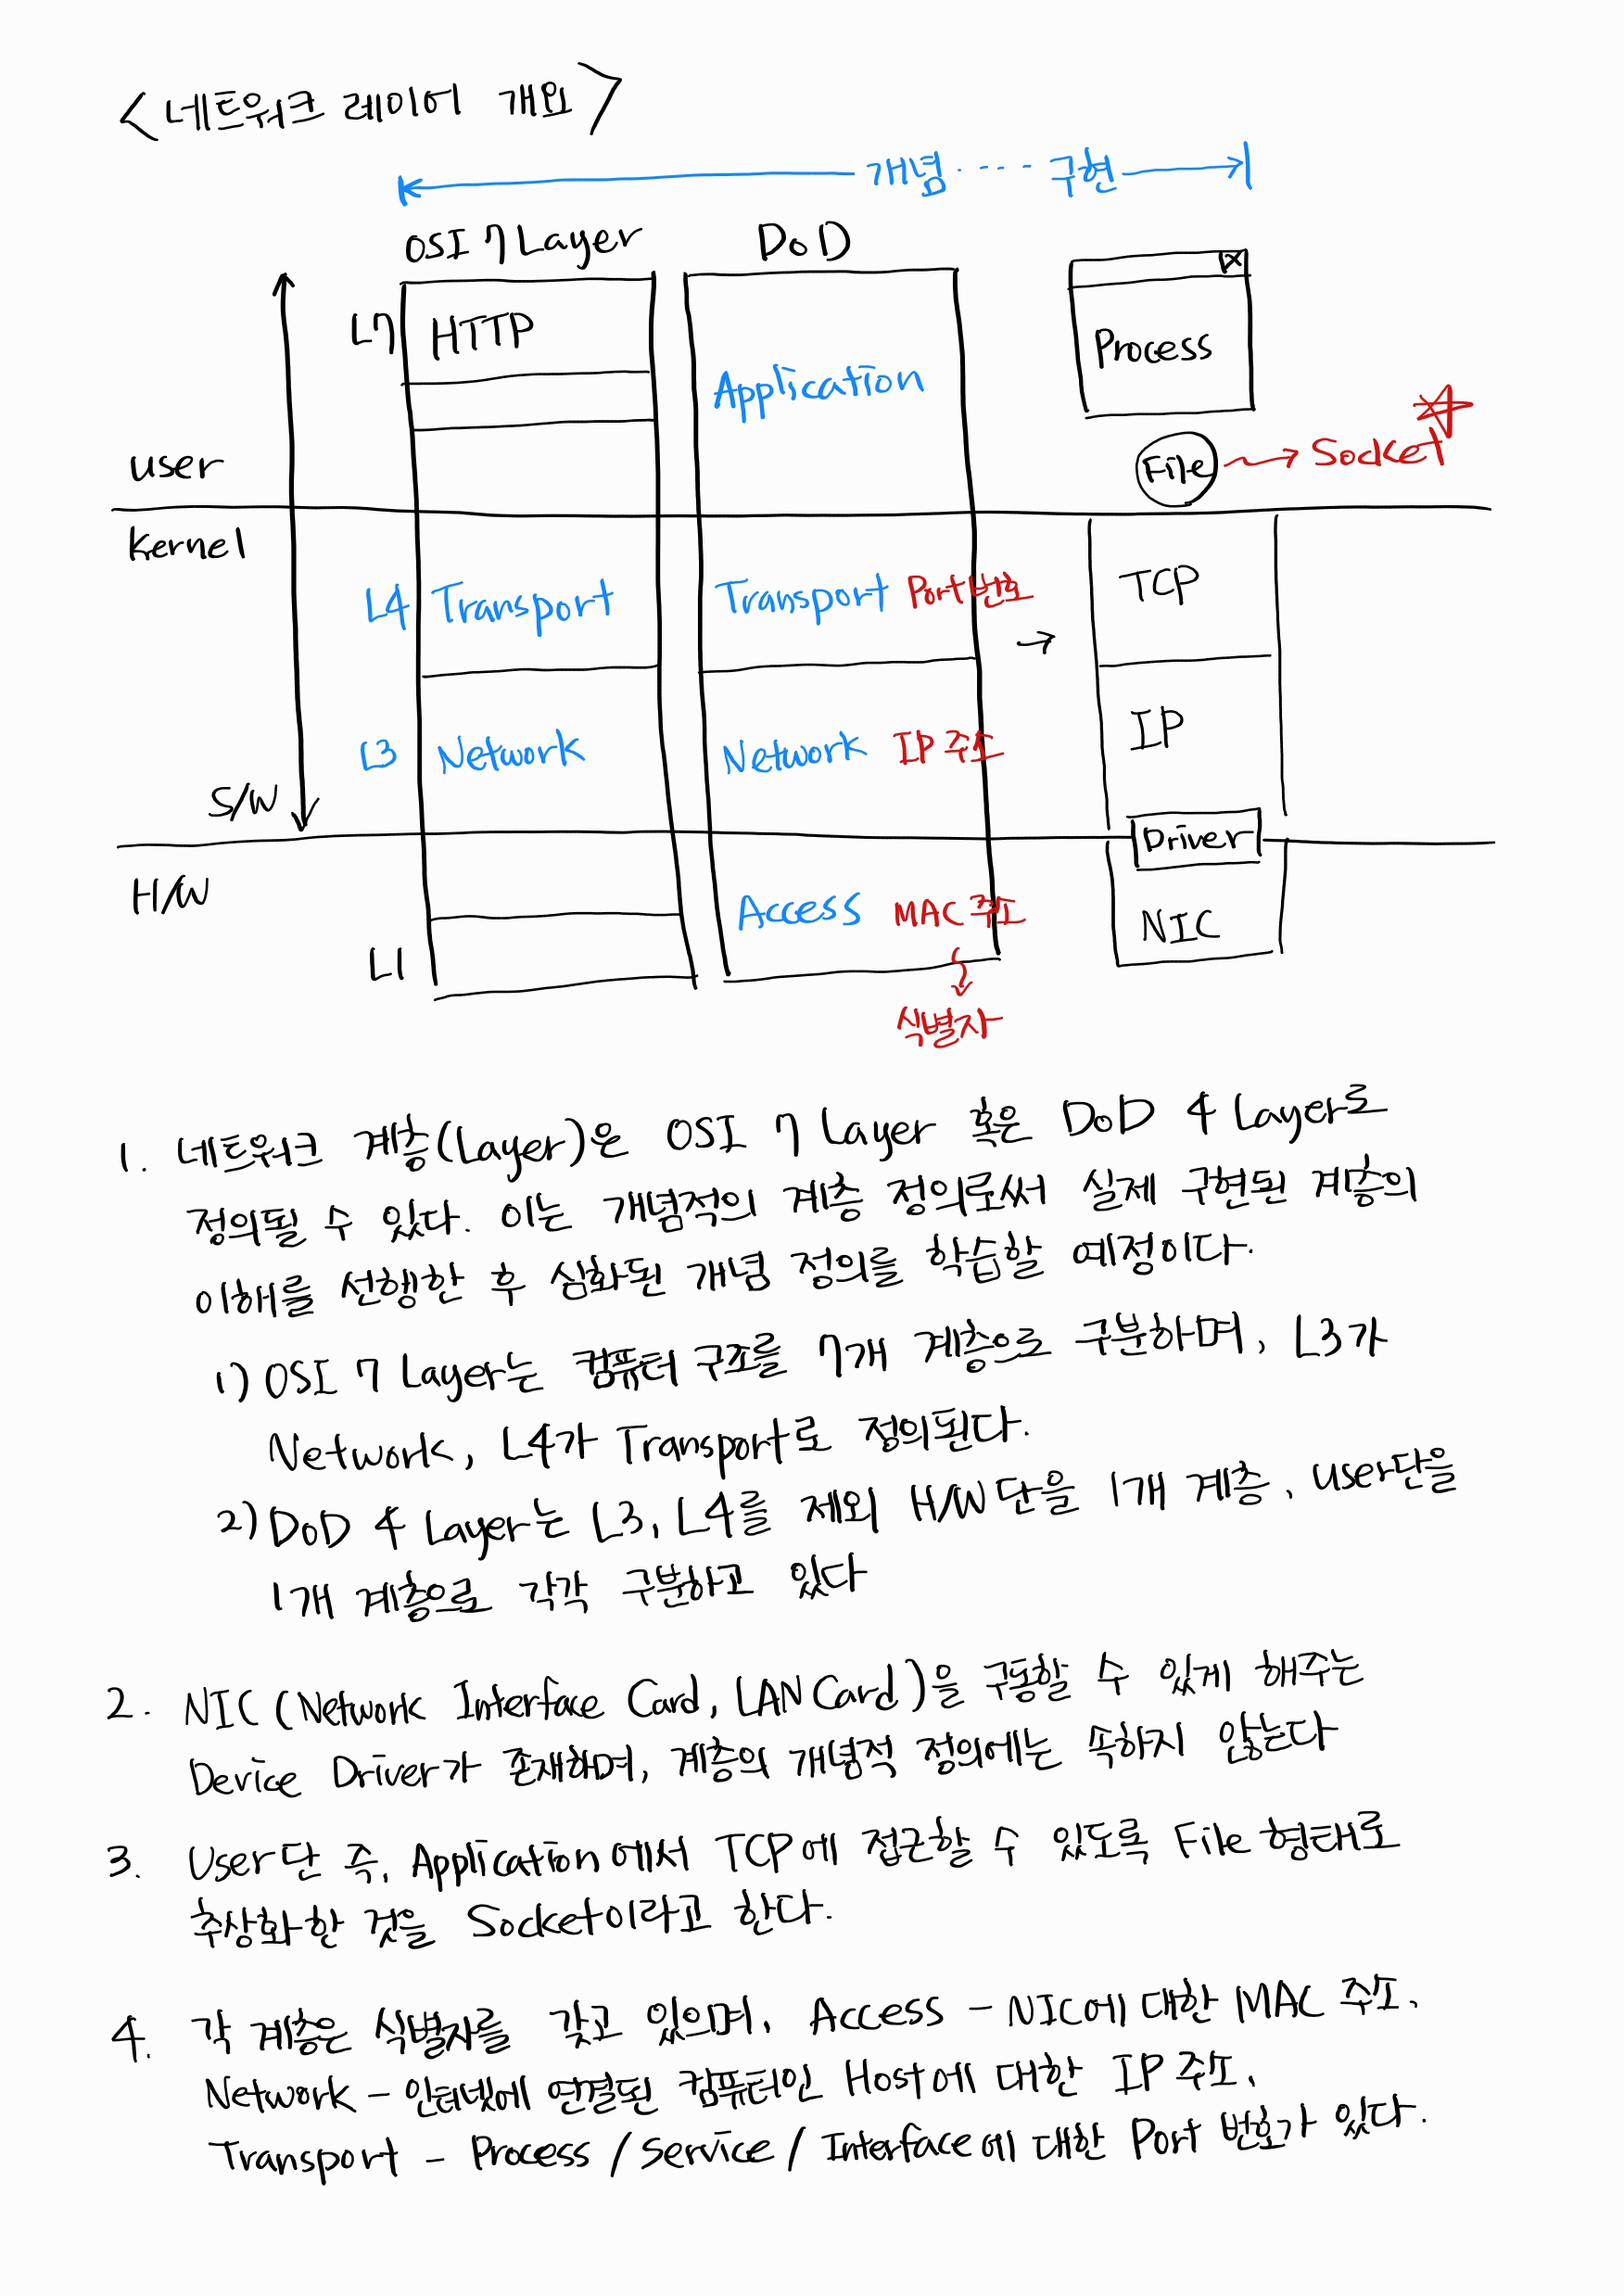 <네트워크 레이어 개요>
개념 ···· 구현
OSI 7 Layer
DoD
L7
HTTP
Application
Process
File → Socket
user
Kernel
L4
Transport
Transport
Port번호
→
TCP
L3
Network
Network
IP 주소
IP
S/W
Driver
H/W
Access
MAC 주소
NIC
L1
식별자
1. 네트워크 계층(Layer)은 OSI 7 Layer 혹은 DoD 4 Layer로
정의될 수 있다. 이는 개념적의 계층 정의로써 실제 구현된 계층의
이해를 선행한 후 심화된 개념 정의를 학습할 예정이다.
1) OSI 7 Layer는 컴퓨터 구조를 7개 계층으로 구분하며, L3가
Network, L4가 Transport로 정의된다.
2) DoD 4 Layer는 L3, L4를 제외 H/W단을 1개 계층, user단을
1개 계층으로 각각 구분하고 있다
2. NIC (Network Interface Card, LAN Card)을 구동할 수 있게 해주는
Device Driver가 존재하며, 계층의 개념적 정의에는 속하지 않는다
3. User단 즉, Application에서 TCP에 접근할 수 있도록 File 형태로
추상화한 것을 Socket이라고 한다.
4. 각 계층은 식별자를 갖고 있으며, Access - NIC에 대한 MAC 주소,
Network - 인터넷에 연결된 컴퓨터인 Host에 대한 IP 주소,
Transport - Process / Service / Interface에 대한 Port 번호가 있다.